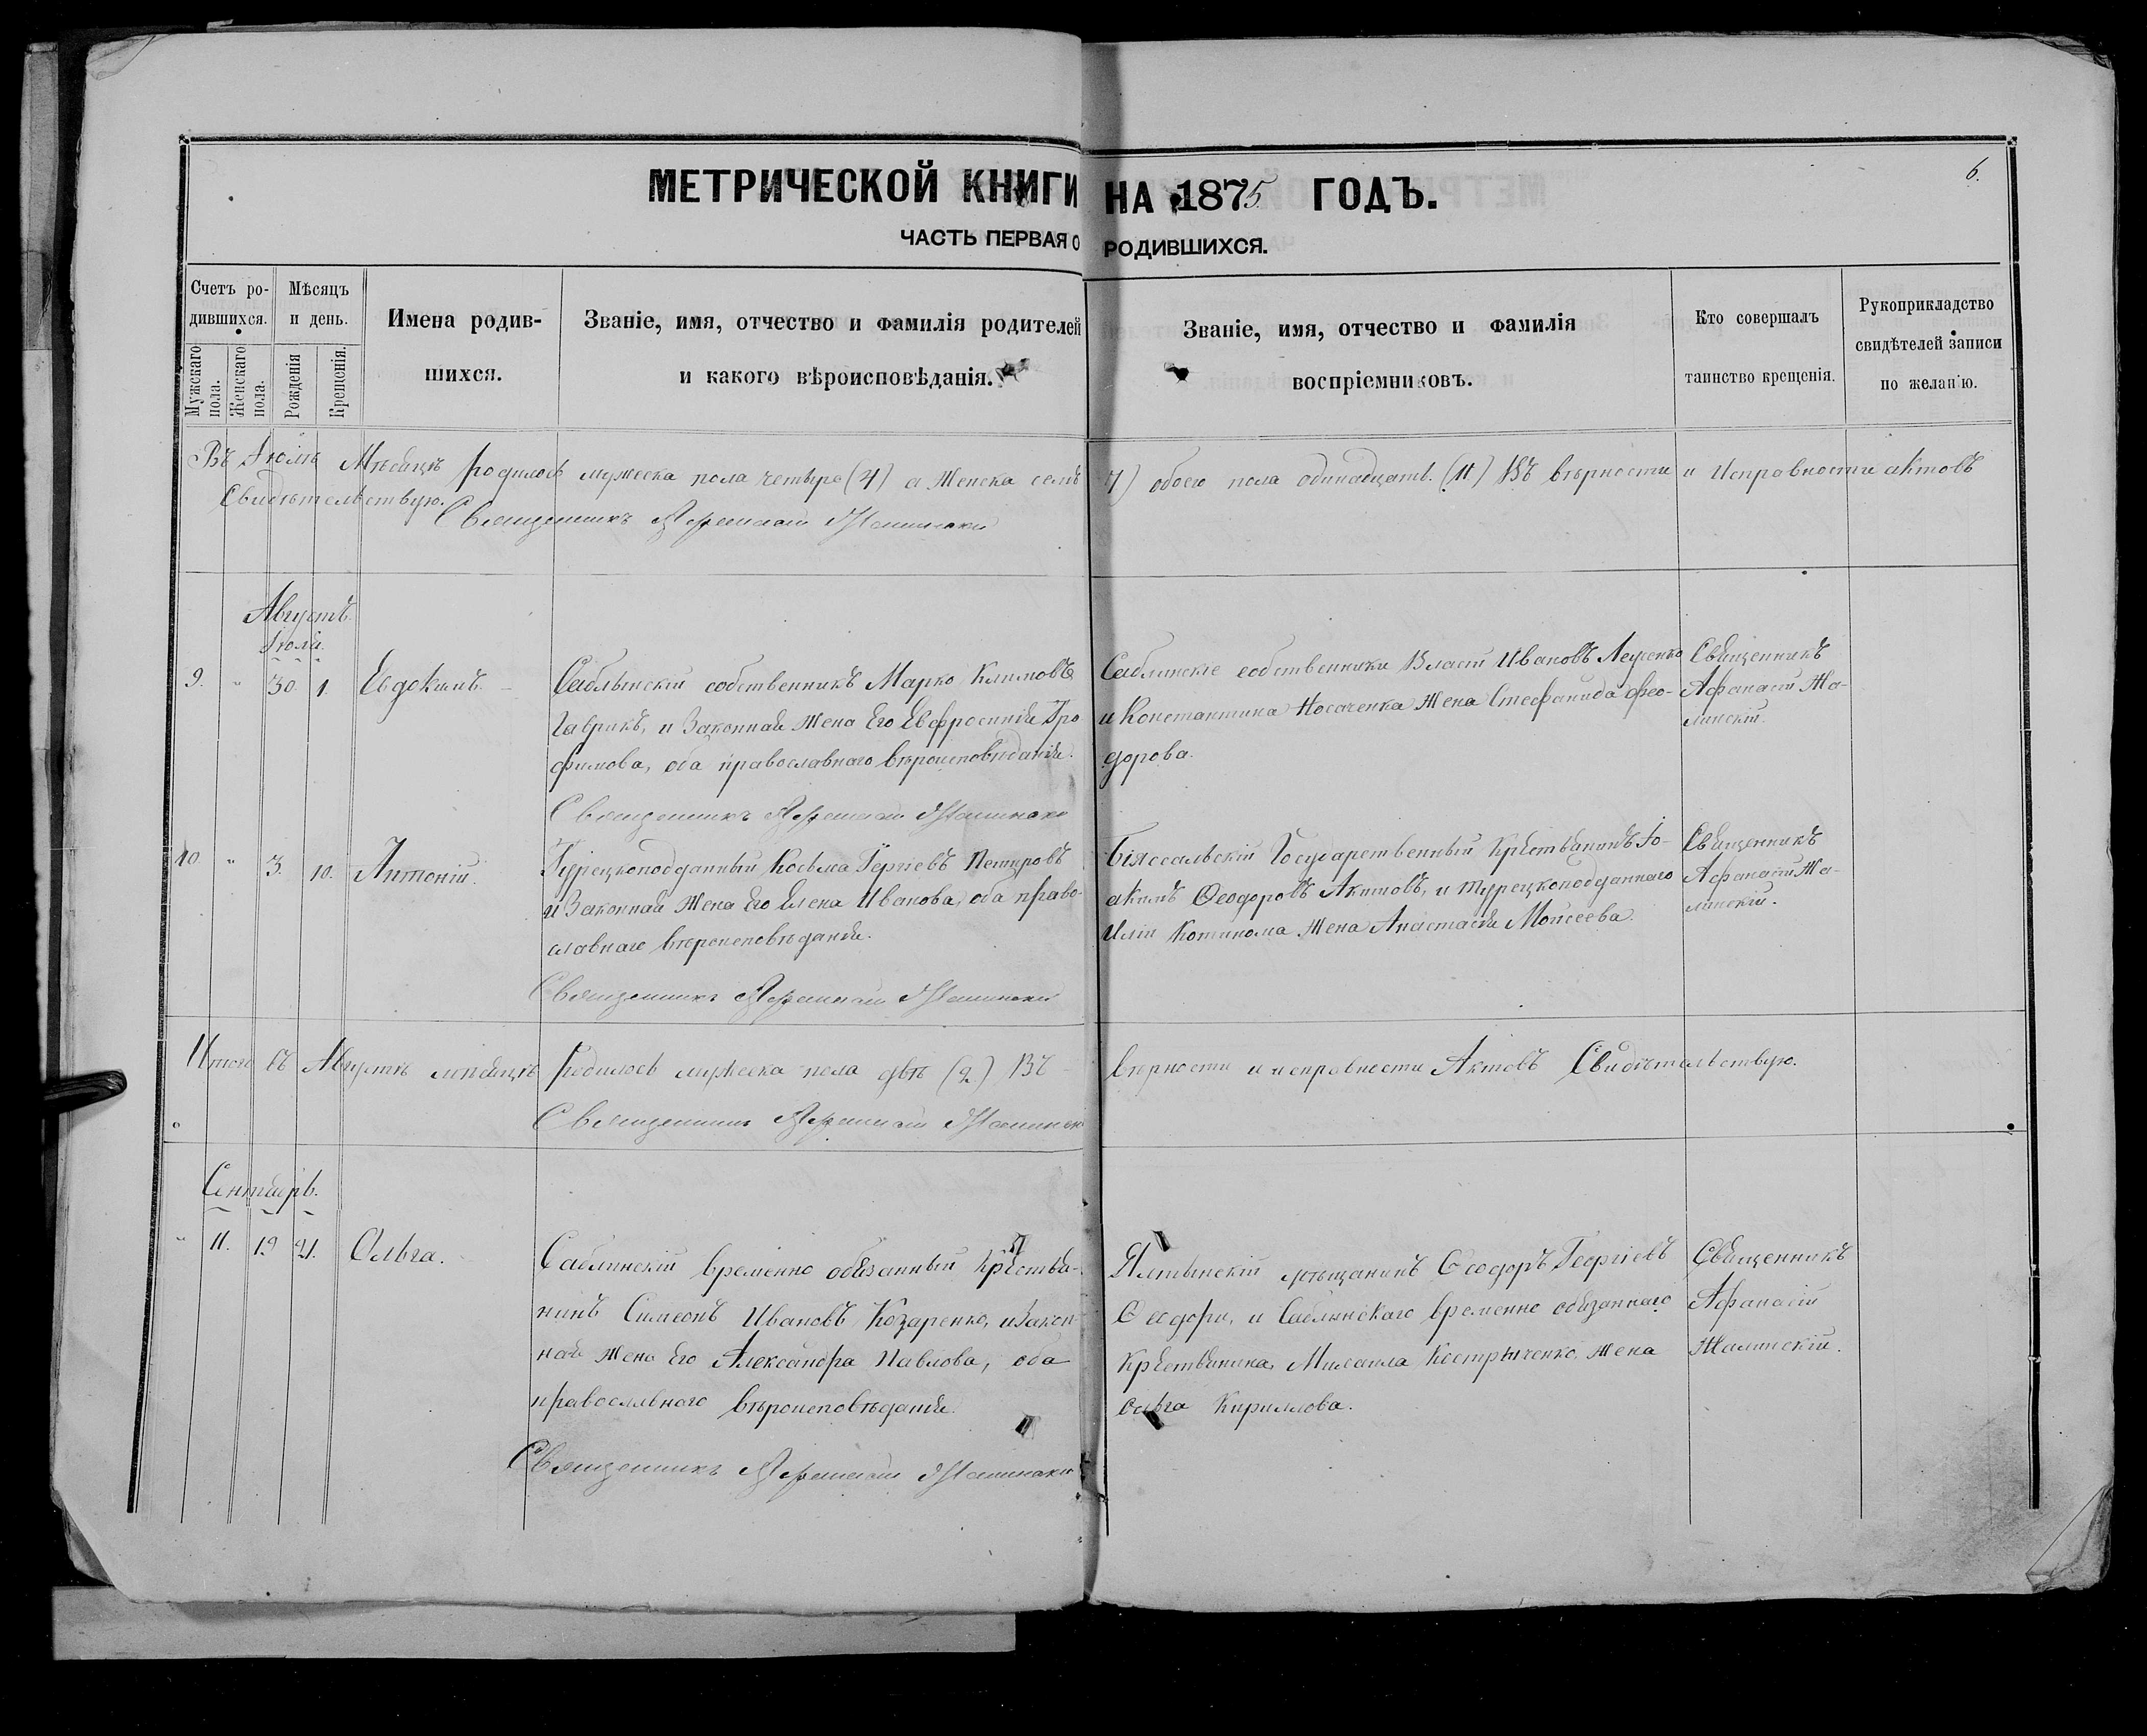 МЕТРИЧЕСКОЙ КНИГИ НА 1875 ГОДЪ.
6.
ЧАСТЬ ПЕРВАЯ О РОДИВШИХСЯ.
Счетъ ро-
дившихся.
Мужскаго пола.
Женскаго пола.
Мѣсяцъ
и день.
Рожденія
Крещенія.
Имена родив-
шихся.
Званіе, имя, отчество и фамилія родителей
и какого вѣроисповѣданія.
Званіе, имя, отчество и фамилія
воспріемниковъ.
Кто совершалъ
таинство крещенія.
Рукоприкладство
свидѣтелей записи
по желанію.
Въ Іюлѣ Мѣсяцѣ родилось мужеска пола четыре (4) а Женска семь (7) обоего пола одинадцать. (11) Въ вѣрности и Исправности актовъ
Свидѣтельствую.
Священникъ Афанасій
Августъ
Іюля.
9. " 30. 1. Евдокимъ.
Саблынскій собственникъ Марко Климовъ
и Законная жена Его Евфросинія Тро
фимова, оба православнаго вѣроисповѣданія.
Священникъ Афанасій
Саблинскіе собственники Власій Ивановъ
и Константина Носаченка Жена Стефанида Фео-
дорова.
Священникъ
Афанасій Жа-
линскій.
10. " 3. 10. Антоній.
Турецкоподданный Косьма Георгіевъ Петровъ
и Законная Жена Его Елена Иванова, оба право-
славнаго вѣроисповѣданія.
Священникъ Афанасій
Біясальскій Государственный Крестьянинъ Іо-
акимъ Ѳеодоровъ Акимовъ, и турецкоподданнаго
Иліи Жена Анастасія Моисеева.
Священникъ
Афанасій Жа-
линскій.
Итого въ Августѣ мѣсяцѣ Родилось мужеска пола два (2) Въ вѣрности и исправности Актовъ Свидѣтельствую.
Священникъ Афанасій
Сентябрь.
" 11. 19 21. Ольга.
Саблинскій временно обязанный Крестья-
нинъ Симеонъ Ивановъ Козаренко, и Закон-
ная жена Его Александра Павлова, оба
православнаго вѣроисповѣданія.
Священникъ Афанасій
Ялтынскій мѣщанинъ Ѳеодоръ Георгіевъ
Ѳеодори, и Саблынскаго временно обязаннаго
Крестьянина, Михаила Жена
Ольга Кириллова.
Священникъ
Афанасій
Жалинскій.